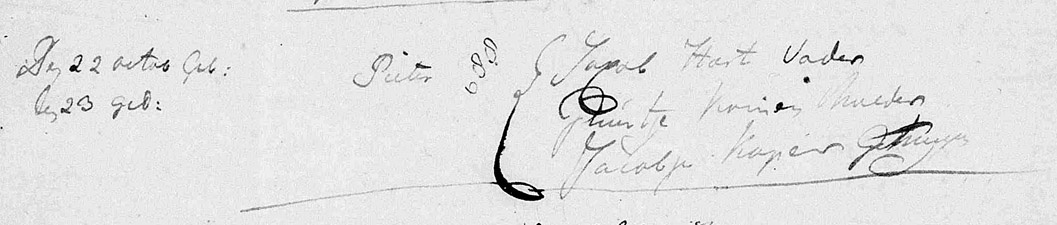 Den 22 octob Geb:
den 23 ged:
Pieter
689
Jacob Hart Vader
Grietje Moeder
Jacobje Getuyge